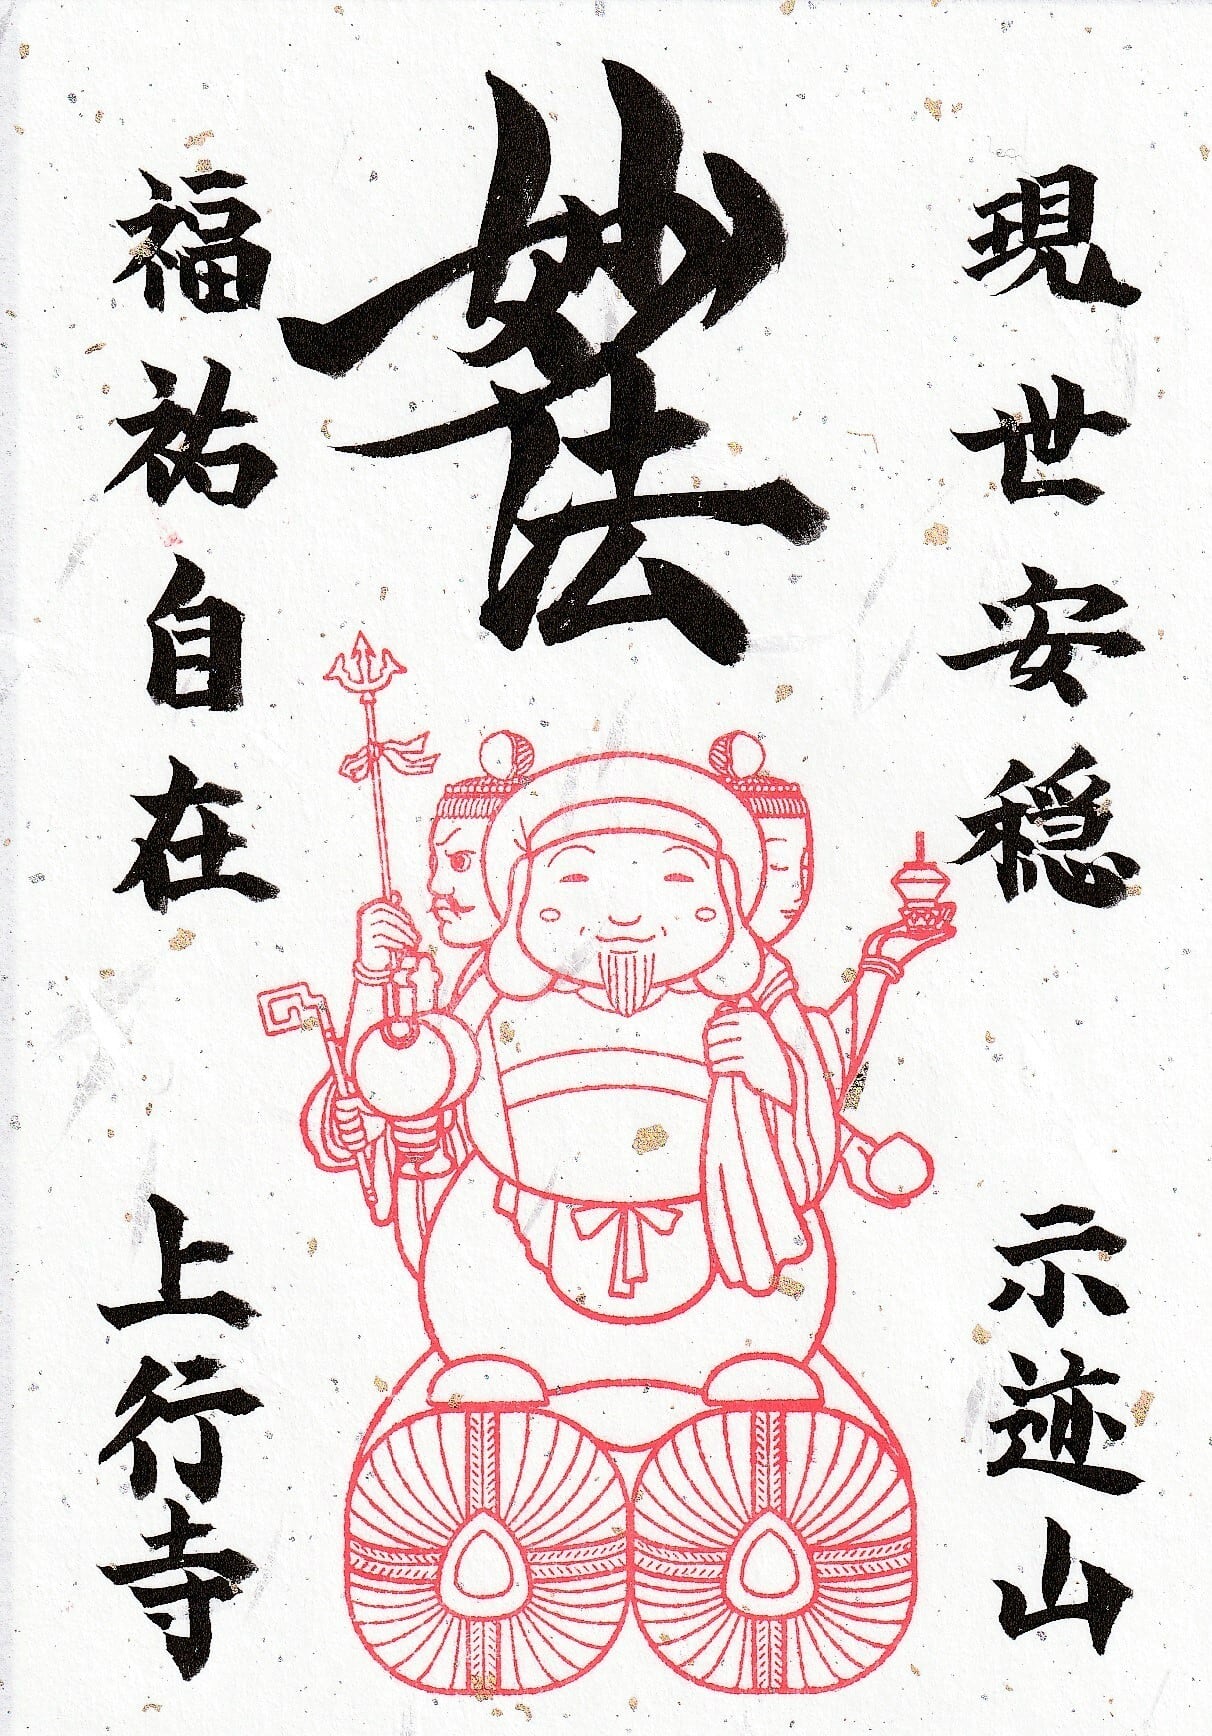 現世安穏
示迹山
妙法
福祐自在
上行寺